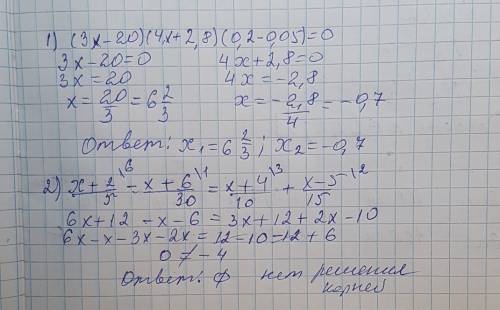 1) (3x-20)(4x+2,8)(0,2-0,05)=0
3x-20=0 4x+2,8=0
3x=20 4x=-2,8
x=20/3=6 2/3 x=-2,8/4=-0,7
Ответ: x₁=6 2/3; x₂=-0,7
2) x+2/5\6 - x+6/30\1 = x+4/10\3 + x-5/15\2
6x+12-x-6=3x+12+2x-10
6x-x-3x-2x=12-10-12+6
0≠-4
Ответ: ∅ нет решения
корней